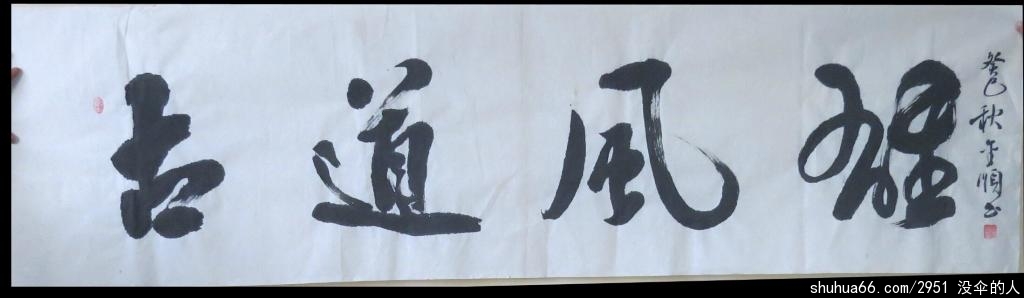 古道風雅
癸巳秋金順书
shuhua66.com/2951 没伞的人